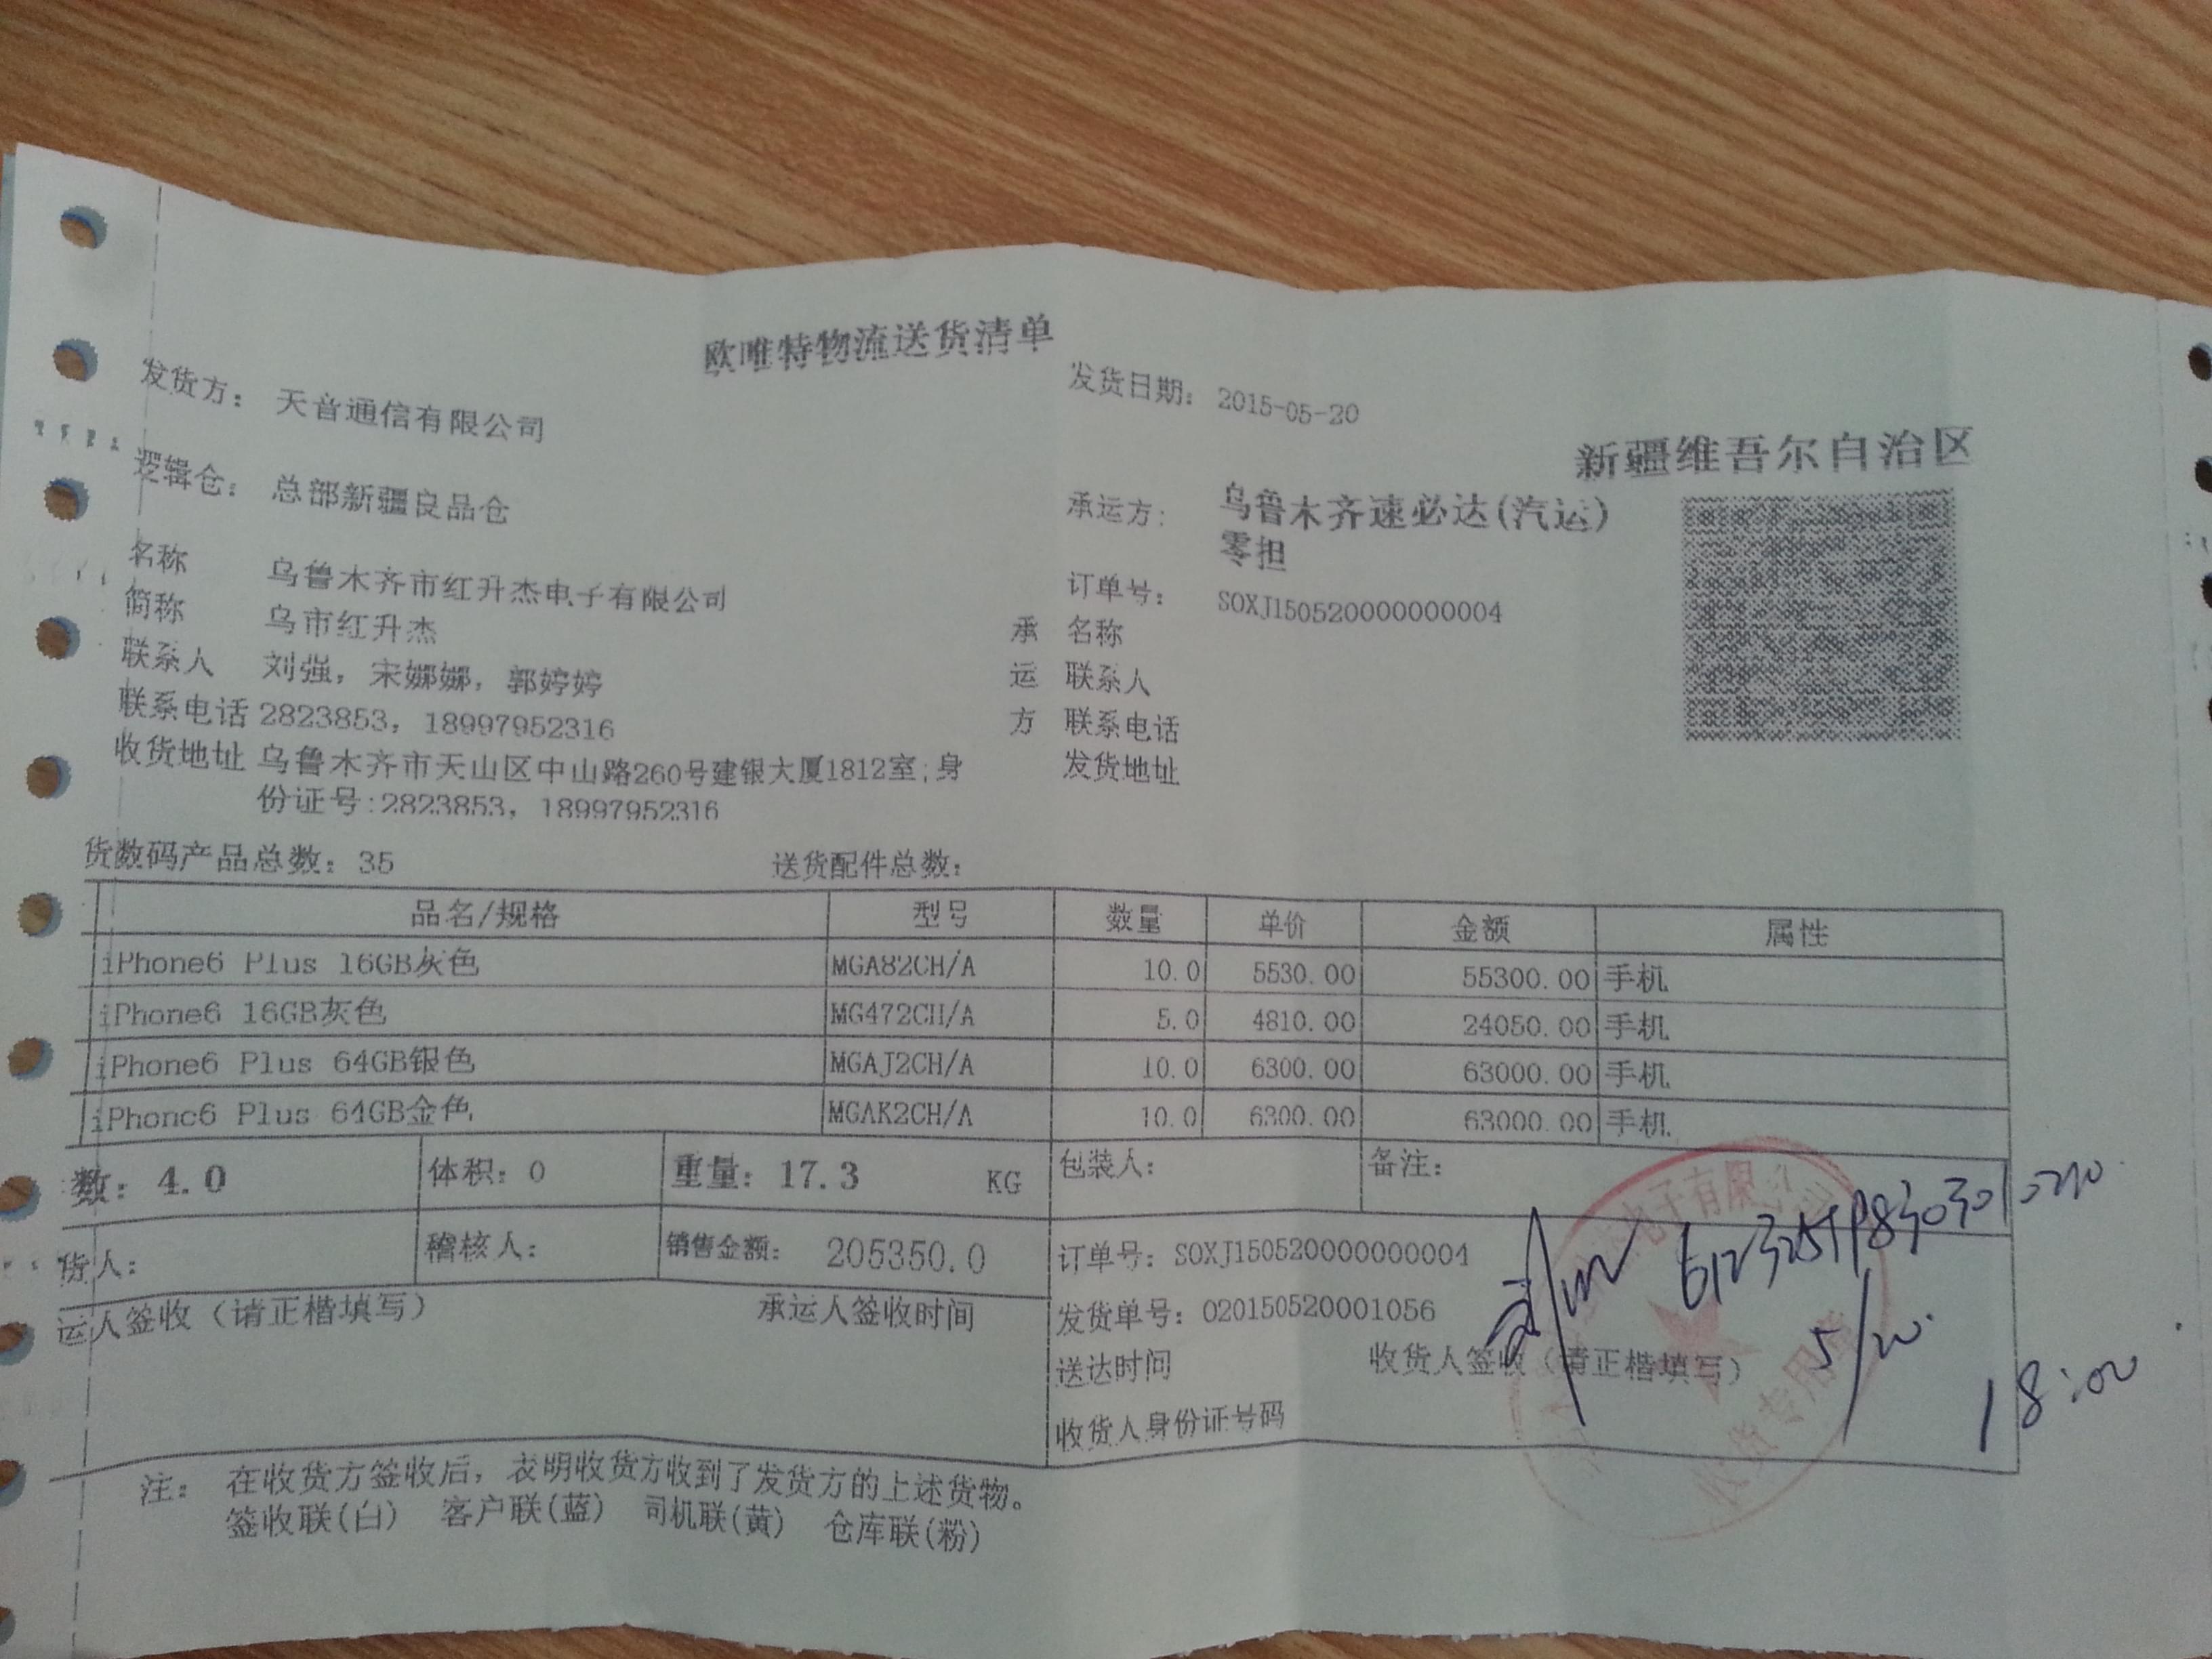 欧唯特物流送货清单
发货方： 天音通信有限公司
发货日期： 2015-05-20
新疆维吾尔自治区
逻辑仓： 总部新疆良品仓
承运方： 乌鲁木齐速必达(汽运)
零担
名称 乌鲁木齐市红升杰电子有限公司
订单号： SOXJ150520000000004
简称 乌市红升杰
承 名称
联系人 刘强，宋娜娜，郭婷婷
运 联系人
联系电话 2823853，18997952316
方 联系电话
收货地址 乌鲁木齐市天山区中山路260号建银大厦1812室;身
发货地址
份证号:2823853，18997952316
货数码产品总数：35 送货配件总数：
品名/规格 型号 数量 单价 金额 属性
iPhone6 Plus 16GB灰色 MGA82CH/A 10.0 5530.00 55300.00 手机
iPhone6 16GB灰色 MG472CH/A 5.0 4810.00 24050.00 手机
iPhone6 Plus 64GB银色 MGAJ2CH/A 10.0 6300.00 63000.00 手机
iPhone6 Plus 64GB金色 MGAK2CH/A 10.0 6300.00 63000.00 手机
数：4.0 体积：0 重量：17.3 KG 包装人： 备注：
货人： 稽核人： 销售金额： 205350.0 订单号：SOXJ150520000000004
运人签收（请正楷填写） 承运人签收时间 发货单号：020150520001056
送达时间 收货人签收（请正楷填写）
5/20
18:00
收货人身份证号码
电子有限公司
收货专用章
注： 在收货方签收后，表明收货方收到了发货方的上述货物。
签收联(白) 客户联(蓝) 司机联(黄) 仓库联(粉)